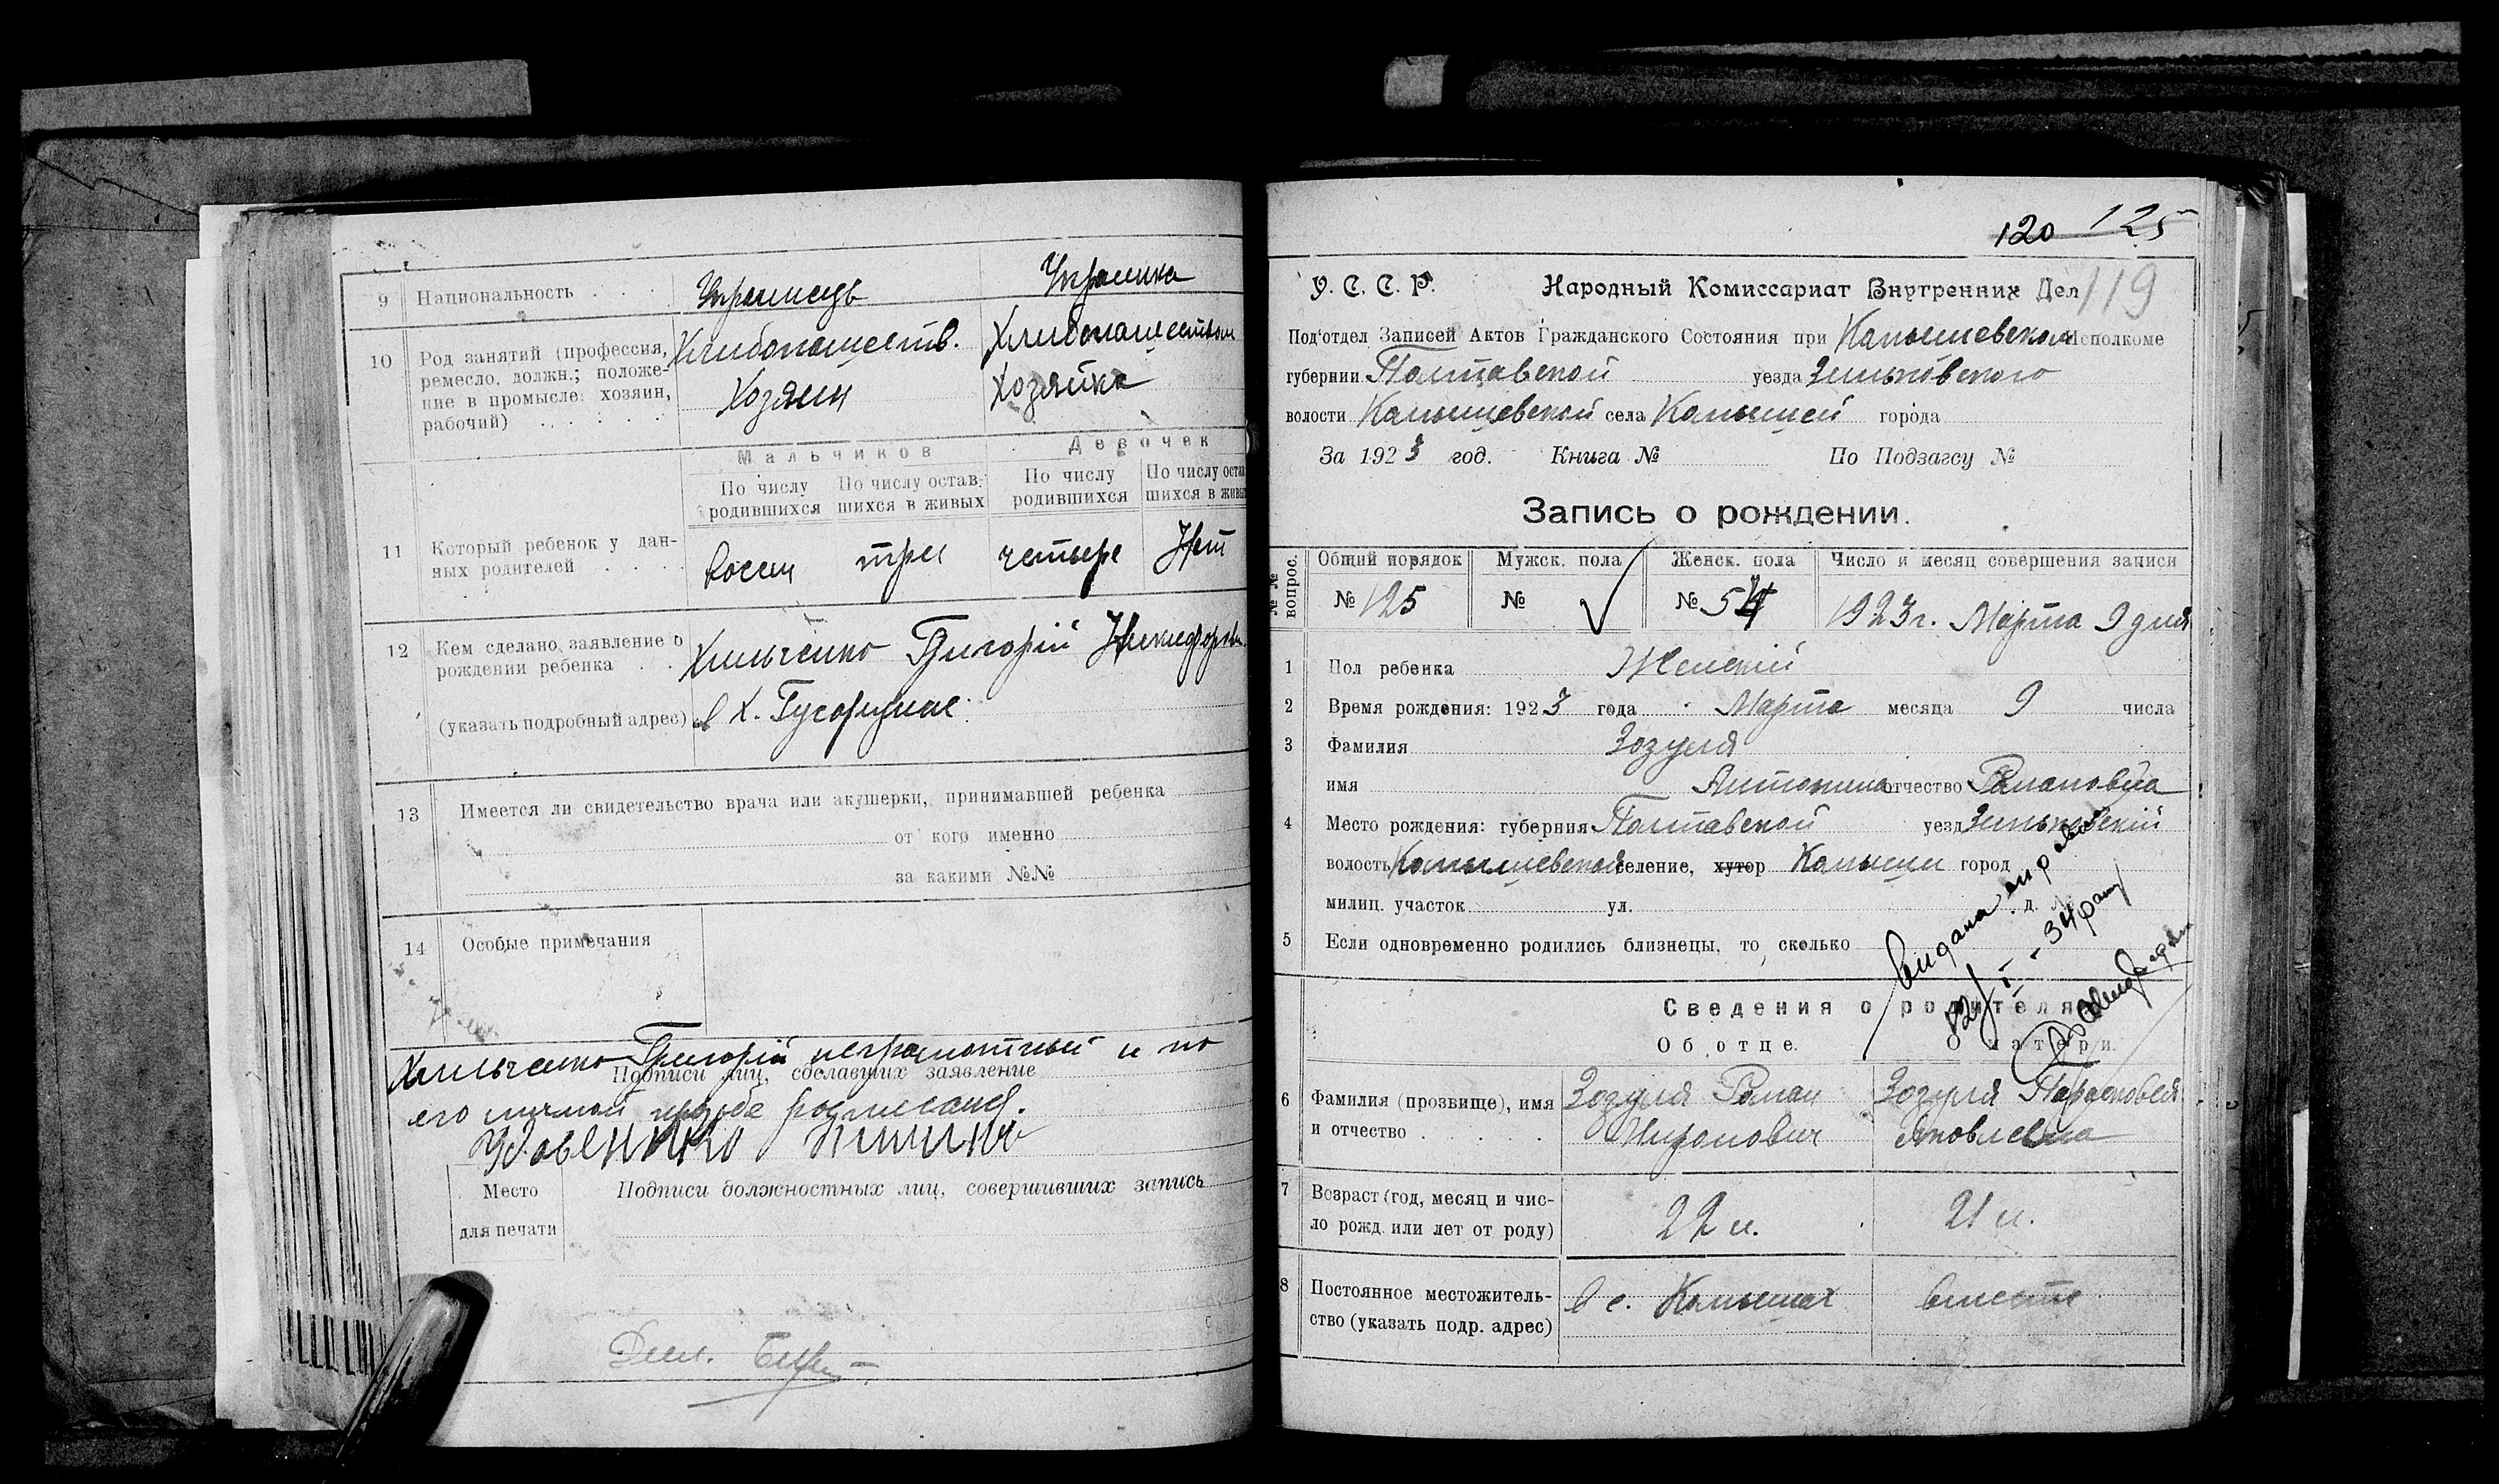 9 Национальность . . . Украинець Украинка
10 Род занятий (профессия, Хлибопашеств. Хлибопашеством
ремесло, должн.; положе-
ние в промысле: хозяин, Хозяин Хозяйка
рабочий) . . . . . .
Мальчиков Девочек
По числу По числу остав- По числу По числу оста
родившихся шихся в живых родившихся шихся в живы
11 Который ребенок у дан-
ных родителей . . . . восем три четыре Нет
12 Кем сделано заявление о
рождении ребенка . . Хильченко Григорій Никифоров
(указать подробный адрес) в х.
13 Имеется ли свидетельство врача или акушерки, принимавшей ребенка
от кого именно
за какими №№
14 Особые примечания
Хильченко Григорій неграмотный и по
Подписи лиц, сделавших заявление
его личной прозбе росписался.
Место Подписи должностных лиц, совершивших запись
для печати
Дел.
120 125
У. С. С. Р. Народный Комиссариат Внутренних Дел 119
Под'отдел Записей Актов Гражданского Состояния при Камышевском Исполкоме
губернии Полтавской уезда Зиньковского
волости Камышевской села Камышей города
За 1923 год. Книга № По Подзагсу №
Запись о рождении.
№№ вопрос. Общий порядок Мужск. пола Женск. пола Число и месяц совершения записи
№ 125 № № 54 1923 г. Марта 9 дня
1 Пол ребенка Женскій
2 Время рождения: 1923 года Марта месяца 9 числа
3 Фамилия Зозуля
имя Антонина отчество Романовна
4 Место рождения: губерния Полтавской уезд Зиньковскій
волость Камышевской селение, хутор Камыши город
милиц. участок ул. д.
5 Если одновременно родились близнецы, то сколько
Видана справка
82/I - 34
Сведения о родителях
Об отце. О матери.
6 Фамилия (прозвище), имя Зозуля Роман Зозуля Парасковея
и отчество . . . . . Миронович Яковлевна
7 Возраст (год, месяц и чис-
ло рожд. или лет от роду) 22 л. 21 л.
8 Постоянное местожитель- в с. Камышах вместе
ство (указать подр. адрес)